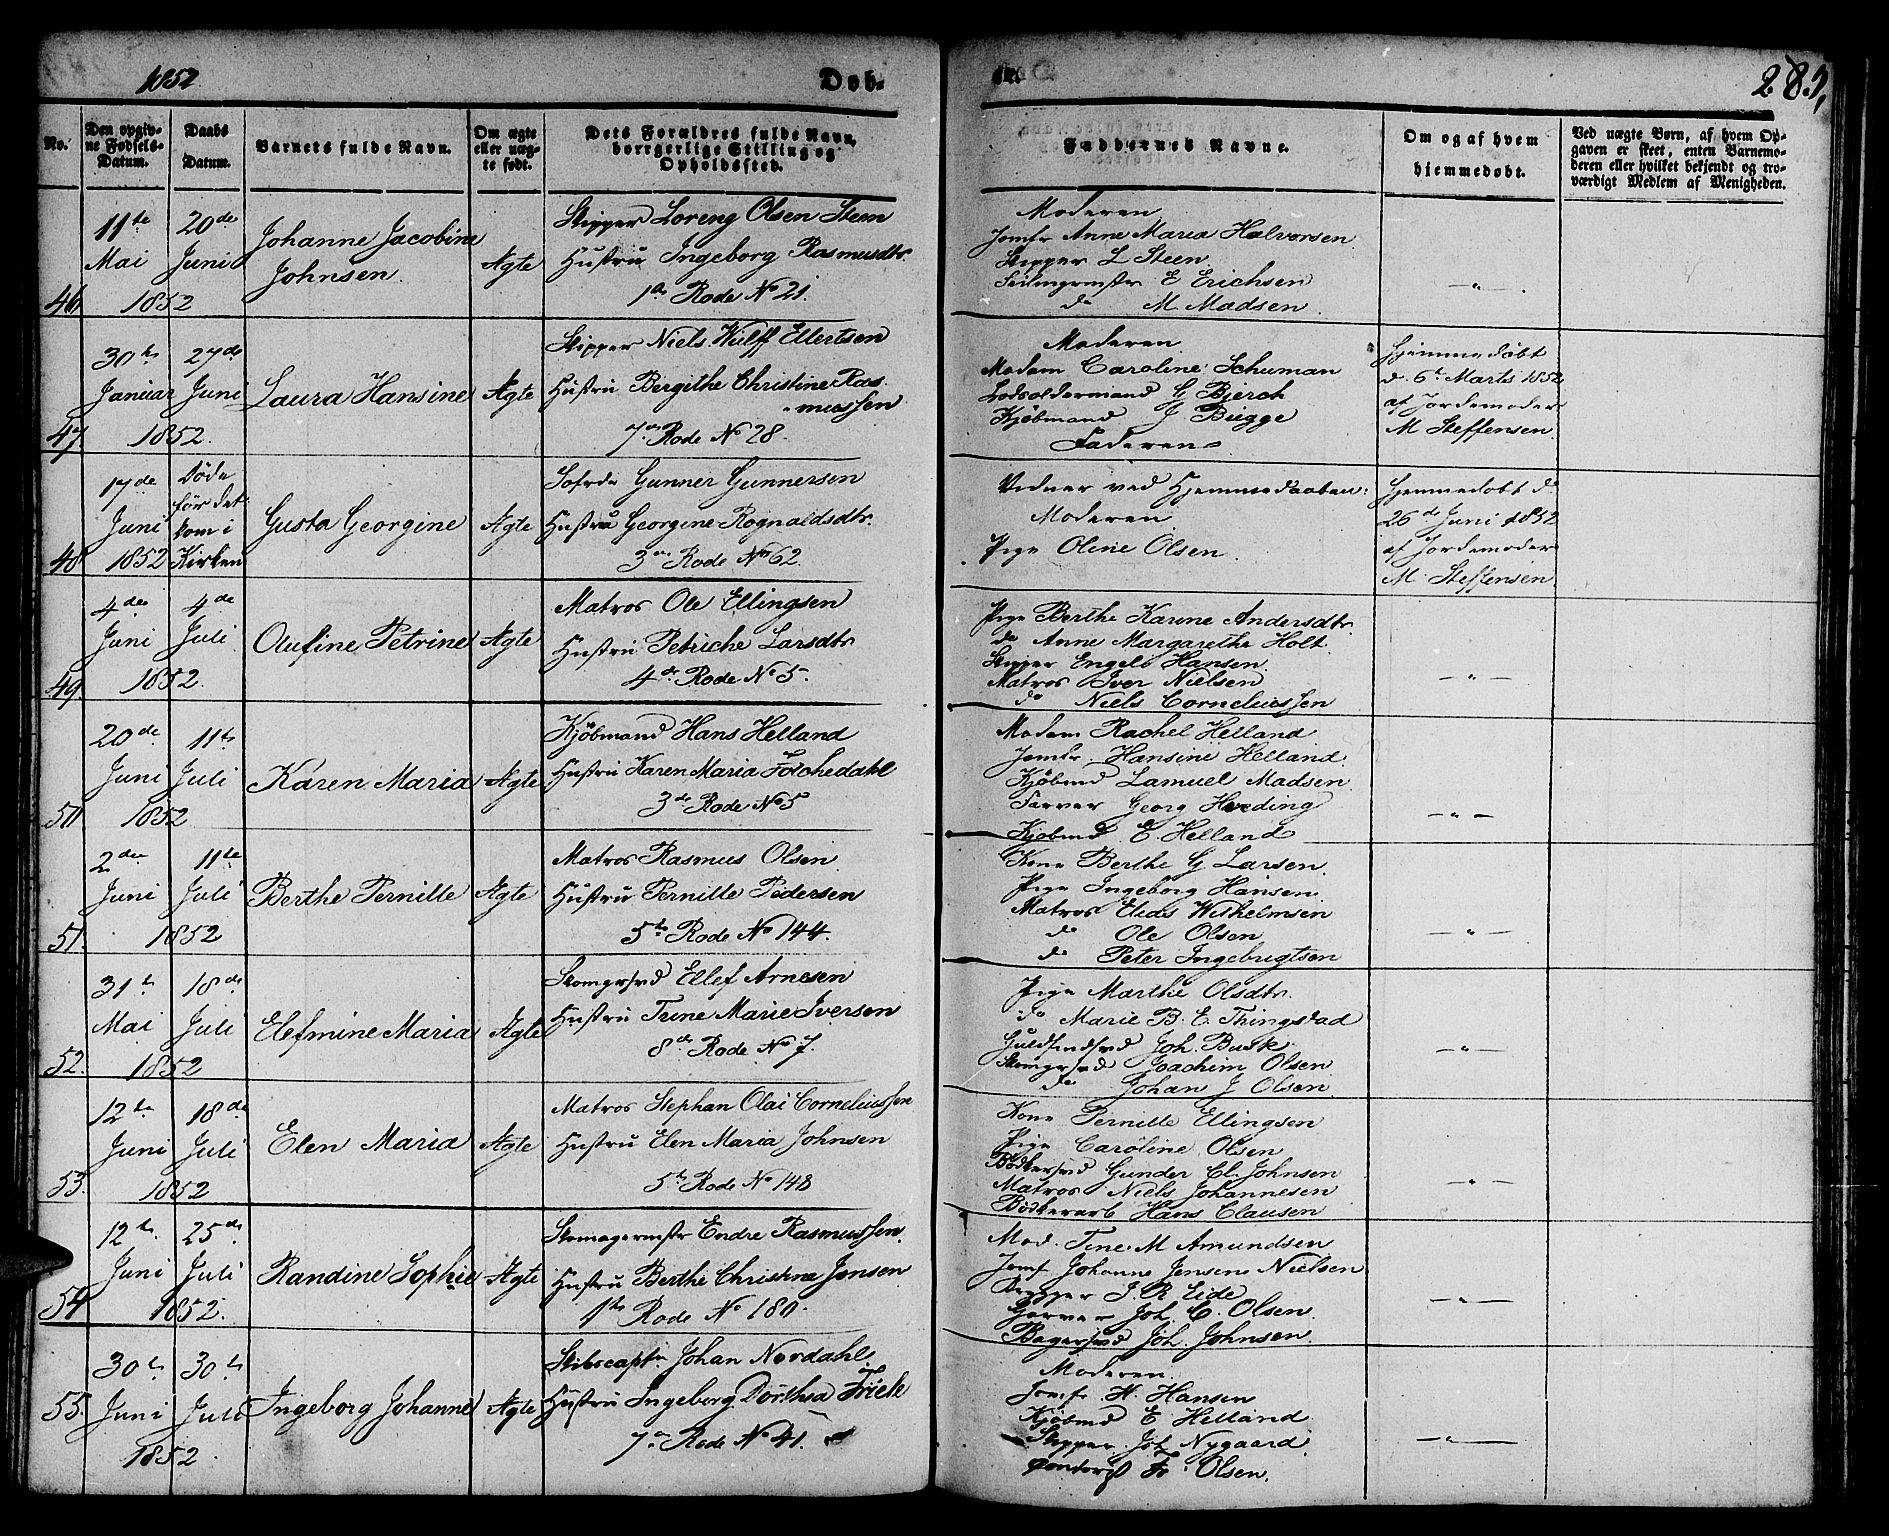 1852
Døb-
te.
285,
No.
Den opgiv-
ne Fødsels-
Datum.
Daabs
Datum.
Barnets fulde Navn.
Om ægte
eller uæg-
te født.
Dets Forældres fulde Navn,
borgerlige Stilling og
Opholdssted.
Faddernes Navne.
Om og af hvem
hjemmedøbt.
Ved uægte Børn, af hvem Op-
gaven er skeet, enten Barnemo-
deren eller hvilket bekjendt og tro-
værdigt Medlem af Menigheden.
46
11te
Mai
20de
Juni
1852
Johanne Jacobine
Johnsen
Ægte
Skipper Loreng Olsen Steen
Hustru Ingeborg Rasmusdtr
1ste Rode No 21.
Moderen
Jomfr Anne Maria Halvorsen
Skipper L Steen
Seilmagermster E Erichsen
do M. Madsen
— " —
47
30te
Januar
27de
Juni
1852.
Laura Hansine
Ægte
Skipper Niels Wulff Ellertsen
Hustru Bergithe Christine Ras-
mussen
7de Rode No 28.
Moderen
Madam Caroline Schuman
Lodsoldermand G Bjerch
Kjøbmand J Bugge
Faderen
Hjemmedøbt
d. 6te Marts 1852
af Jordemoder
M Steffensen
48
17de
Juni
1852
Døde
før det
kom i
Kirken
Gusta Georgine
Ægte
Gunner Gunnersen
Hustru Georgine Rognaldsdtr.
3de Rode No 62.
Vidner ved Hjemmedaaben:
Moderen
Pige Oline Olsen
Hjemmedøbt d.
26de Juni 1852
af Jordemoder
M Steffensen
49
4de
Juni
4de
Juli
1852.
Olufine Petrine
Ægte
Matros Ole Ellingsen
Hustru Petriche Larsdtr
4de Rode No 5.
Pige Berthe Karine Andersdtr.
do Anne Margarethe Holt
Skipper Engelb Hansen
Matros Iver Nielsen
do Niels Corneliussen
— " —
50
20de
Juni
11te
Juli
1852
Karen Maria
Ægte
Kjøbmand Hans Helland
Hustru Karen Maria Forchedahl
3de Rode No 5
Madam Rachel Helland
Jomfr. Hansine Helland
Kjøbmd Lamuel Madsen
Farver Georg Hveding
Kjøbmd E. Helland
— " —
51.
2den
Juni
11te
Juli
1852
Berthe Pernille
Ægte
Matros Rasmus Olsen
Hustru Pernille Pedersen
5te Rode No 144.
Kone Berthe G Larsen
Pige Ingeborg Hansen
Matros Elias Wilhelmsen
do Ole Olsen
do Peter Ingebrigtsen
— " —
52.
31te
Mai
18de
Juli
1852
Elefmine Maria
Ægte
Skomgrsvd Ellef Arnesen
Hustru Trine Marie Iversen
8de Rode No 7.
Pige Marthe Olsdtr.
do Marie B. E. Thingstad
Guldsmdsvd Joh. Busk
Skomgrsvd Joachim Olsen
do Johan J Olsen
— " —
53.
12te
Juni
18de
Juli
1852
Elen Maria
Ægte
Matros Stephan Olai Corneliussen
Hustru Elen Maria Johnsen
5te Rode No 148
Kone Pernille Ellingsen
Pige Caroline Olsen
Bødkersvd Gunder Cl. Johnsen
Matros Niels Johannesen
Bødkerarb Hans Clausen
— " —
54
12te
Juni
25de
Juli
1852.
Randine Sophie
Ægte
Skomagermstr Endre Rasmussen.
Hustru Berthe Christine Jensen
1ste Rode No 180.
Mad. Tine M Amundsen
Jomf. Johanne Jensine Nielsen
J. R Eide
Garver Joh. C. Olsen.
Bagersvd Joh. Johnsen
— " —
55.
30te
Juni
30te
Juli
1852
Ingeborg Johanne
Ægte
Skibscaptn Johan Nordahl
Hustru Ingeborg Dorthea Friele
7de Rode No 41.
Moderen.
Jomfr. H. Hansen
Kjøbmd E Helland
Skipper Joh Nygaard
Fr. Olsen.
— " —